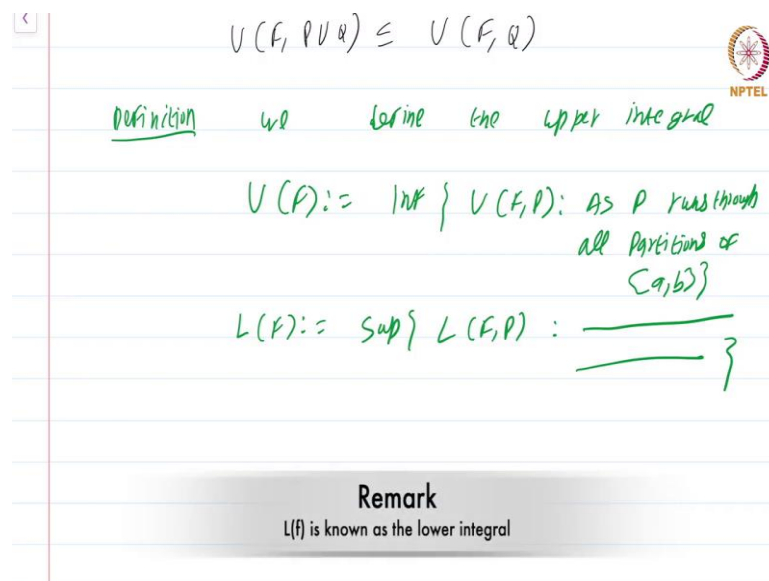 U(F, P∪Q) ≤ U(F, Q)
NPTEL
Definition we define the upper integral
U(F) := inf { U(F,P) : As P runs through
all Partitions of
[a,b] }
L(F) := Sup { L(F,P) : ———
——— }
Remark
L(f) is known as the lower integral